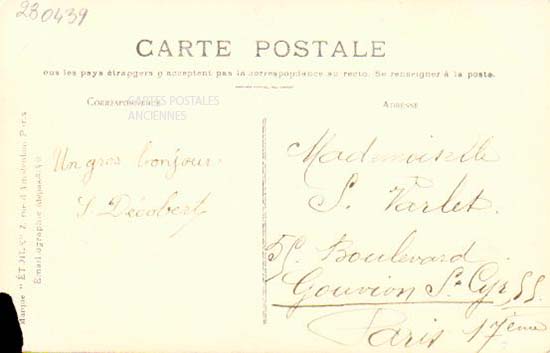 230439
CARTE POSTALE
ous les pays étrangers n'acceptent pas la correspondance au recto. Se renseigner à la poste.
CORRESPONDANCE
CARTES POSTALES
ANCIENNES
ADRESSE
Un gros bonjour
S. Décobert
Mademoiselle
S. Varlet.
55 Boulevard
Gouvion St Cyr, 55
Paris 17ème
Marque "ÉTOILE" 7, rue d'Amsterdam, Paris